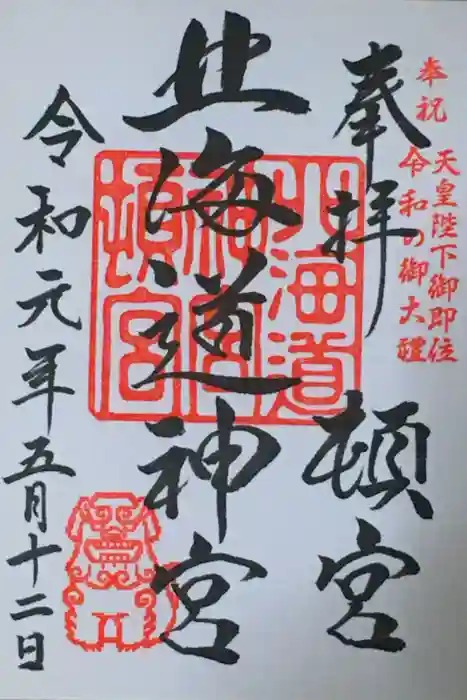 奉祝
天皇陛下御即位
令和の御大禮
奉拝
頓宮
北海道神宮
北海道
神宮
頓宮
令和元年五月十二日